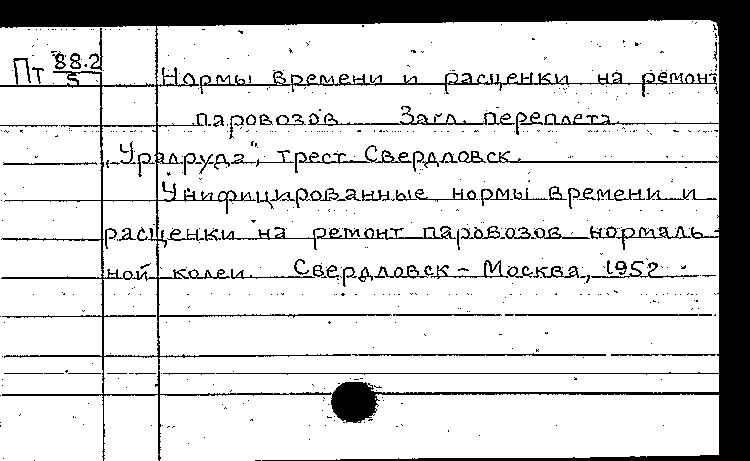 Пт 88.2/5 Нормы времени и расценки на ремонт
паровозов Загл. переплета.
„Уралруда", трест. Свердловск.
Унифицированные нормы времени и
расценки на ремонт паровозов нормаль-
ной колеи. Свердловск - Москва, 1952